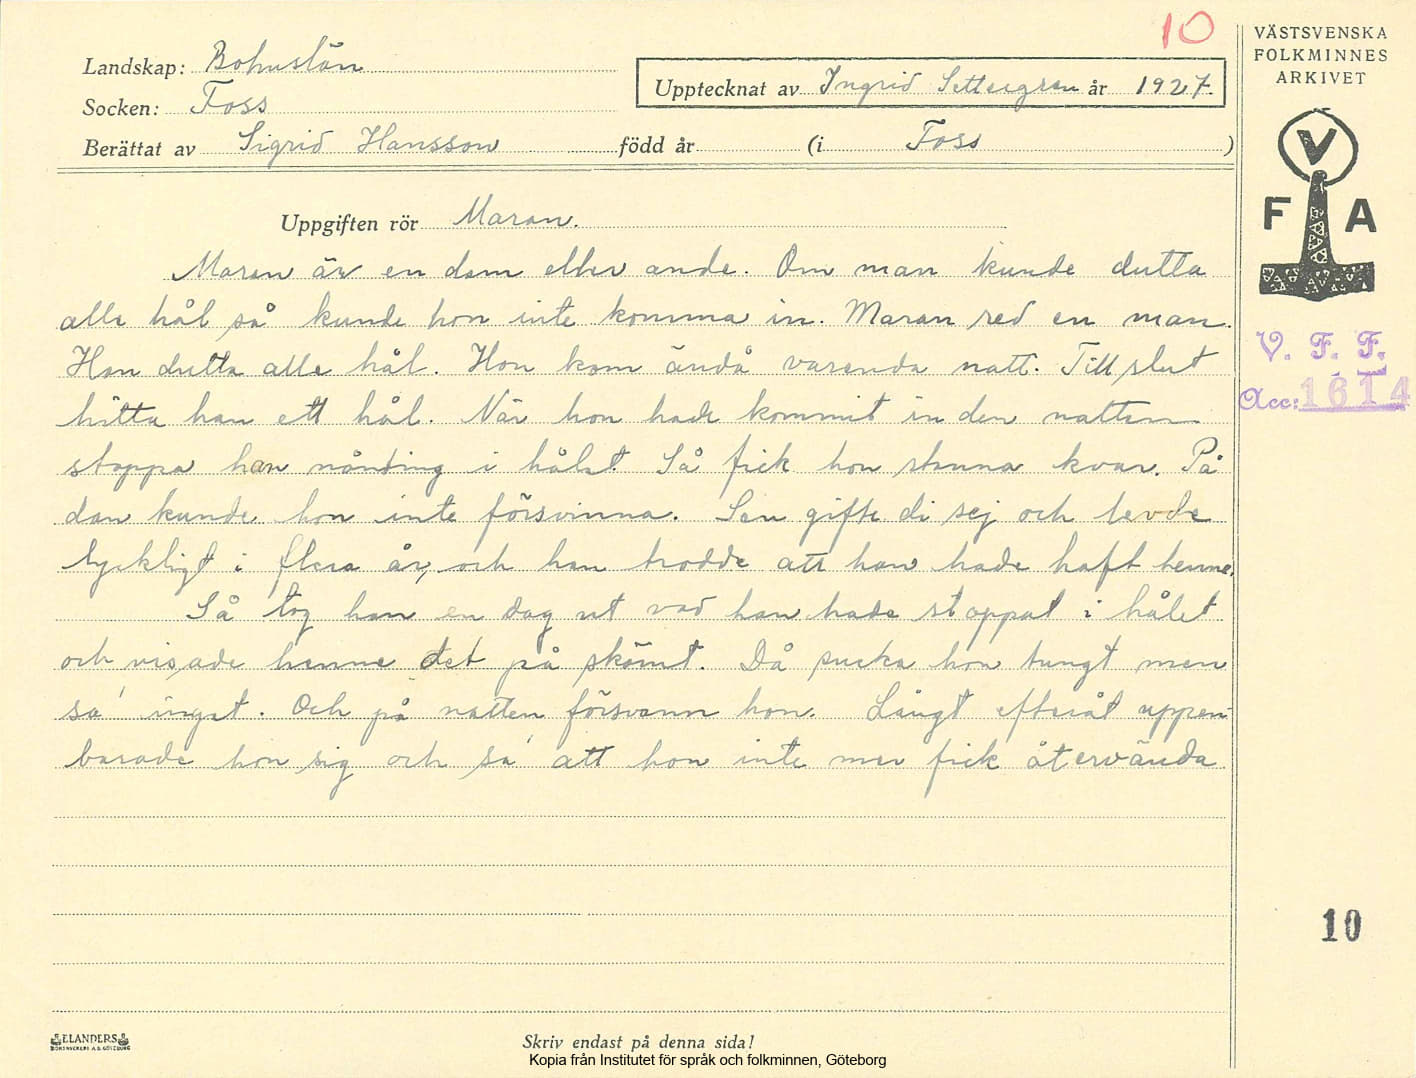 10
Landskap: Bohuslän
Socken: Foss
Upptecknat av Ingrid Settergren år 1927.
Berättat av Sigrid Hansson född år (i Foss )
VÄSTSVENSKA
FOLKMINNES
ARKIVET
V
F A
Uppgiften rör Maran.
Maran är en dam eller ande. Om man kunde dutta
alla hål så kunde hon inte komma in. Maran red en man.
Han dutta alla hål. Hon kom ändå varenda natt. Till slut
hitta han ett hål. När hon hade kommit in den natten
stoppa han nånting i hålet. Så fick hon stanna kvar. På
dan kunde hon inte försvinna. Sen gifte di sej och levde
lyckligt i flera år, och han trodde att han hade haft henne.
Så tog han en dag ut vad han hade stoppat i hålet
och visade henne det på skämt. Då sucka hon tungt men
sa' inget. Och på natten försvann hon. Långt efteråt uppen-
barade hon sig och sa' att hon inte mer fick återvända
V. F. F.
Acc: 1614
10
ELANDERS
BOKTRYCKERI A.B. GÖTEBORG
Skriv endast på denna sida!
Kopia från Institutet för språk och folkminnen, Göteborg